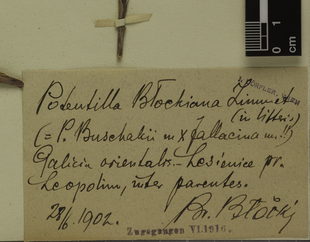 0
1
cm
Potentilla Błockiana Zimmet
DÖRFLER, WIEN
(in litteris)
(= P. Buschakii m × fallacina m.!!)
Galicia orientalis. – Lesienice pr.
Leopolim, inter parentes.
28/6. 1902. Br. Błocki
Zugegangen VI.1916.